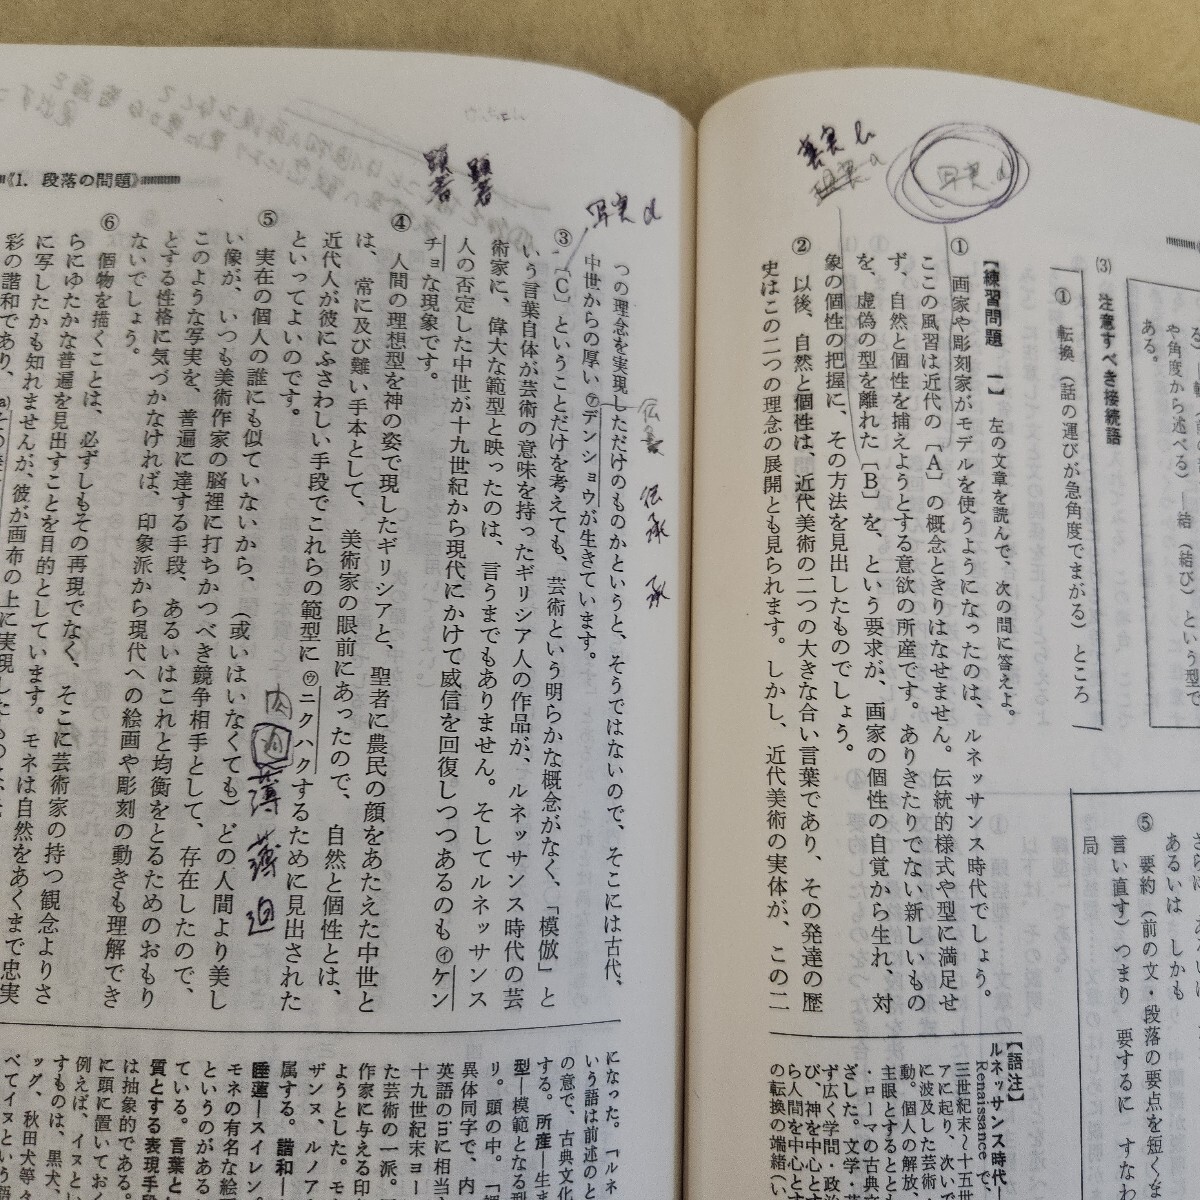 や角度から述べる)―結(結び)という型で
ある。
(3) 注意すべき接続語
① 転換(話の運びが急角度でまがる)ところ
あるいは しかも
⑤ 要約(前の文・段落の要点を短く
言い直す) つまり 要するに すなわ
局
写実 d
真実 b
現実 a
【練習問題 一】 左の文章を読んで、次の問に答えよ。
① 画家や彫刻家がモデルを使うようになったのは、ルネッサンス時代でしょう。
ここの風習は近代の[A]の概念ときりはなせません。伝統的様式や型に満足せ
ず、自然と個性を捕えようとする意欲の所産です。ありきたりでない新しいもの
を、虚偽の型を離れた[B]を、という要求が、画家の個性の自覚から生れ、対
象の個性の把握に、その方法を見出したものでしょう。
② 以後、自然と個性は、近代美術の二つの大きな合い言葉であり、その発達の歴
史はこの二つの理念の展開とも見られます。しかし、近代美術の実体が、この二
【語注】
ルネッサンス時代
Renaissance で、
三世紀末〜十五世
アに起り、次いで
に波及した芸術
動。個人の解放、
主眼とするととも
・ローマの古典文
ざした。文学・美
ず広く学問・政治
び、神を中心とす
ら人間を中心とす
の転換の端緒(い
《1. 段落の問題》
写実 d
伝承 承
顕著
顕著
つの理念を実現しただけのものかというと、そうではないので、そこには古代、
中世からの厚い㋐デンショウが生きています。
③ [C]ということだけを考えても、芸術という明らかな概念がなく、「模倣」と
いう言葉自体が芸術の意味を持ったギリシア人の作品が、ルネッサンス時代の芸
術家に、偉大な範型と映ったのは、言うまでもありません。そしてルネッサンス
人の否定した中世が十九世紀から現代にかけて威信を回復しつつあるのも㋑ケン
チョな現象です。
④ 人間の理想型を神の姿で現したギリシアと、聖者に農民の顔をあたえた中世と
は、常に及び難い手本として、美術家の眼前にあったので、自然と個性とは、
近代人が彼にふさわしい手段でこれらの範型に㋒ニクハクするために見出された
といってよいのです。
肉
薄 薄 迫
⑤ 実在の個人の誰にも似ていないから、(或いはいなくても)どの人間より美し
い像が、いつも美術作家の脳裡に打ちかつべき競争相手として、存在したので、
このような写実を、普遍に達する手段、あるいはこれと均衡をとるためのおもり
とする性格に気づかなければ、印象派から現代への絵画や彫刻の動きも理解でき
ないでしょう。
⑥ 個物を描くことは、必ずしもその再現でなく、そこに芸術家の持つ観念よりさ
らにゆたかな普遍を見出すことを目的としています。モネは自然をあくまで忠実
に写したかも知れませんが、彼が画布の上に実現したものは
彩の諧和であり、
になった。「ルネ
いう語は前述のと
の意で、古典文化
する。所産―生ま
型―模範となる型
リ。頭の中。
異体同字で、内
英語のinに相当
十九世紀末ヨー
た芸術の一派。
作家に与える印
ようとした。モ
ザンヌ、ルノア
属する。諧和―
睡蓮―スイレン。
モネの有名な絵
というのがある
ている。言葉と
質とする表現手段
は抽象的である。
に頭に置いておく
例えば、イヌと
すものは、黒犬、
ッグ、秋田犬等々
べてイヌという